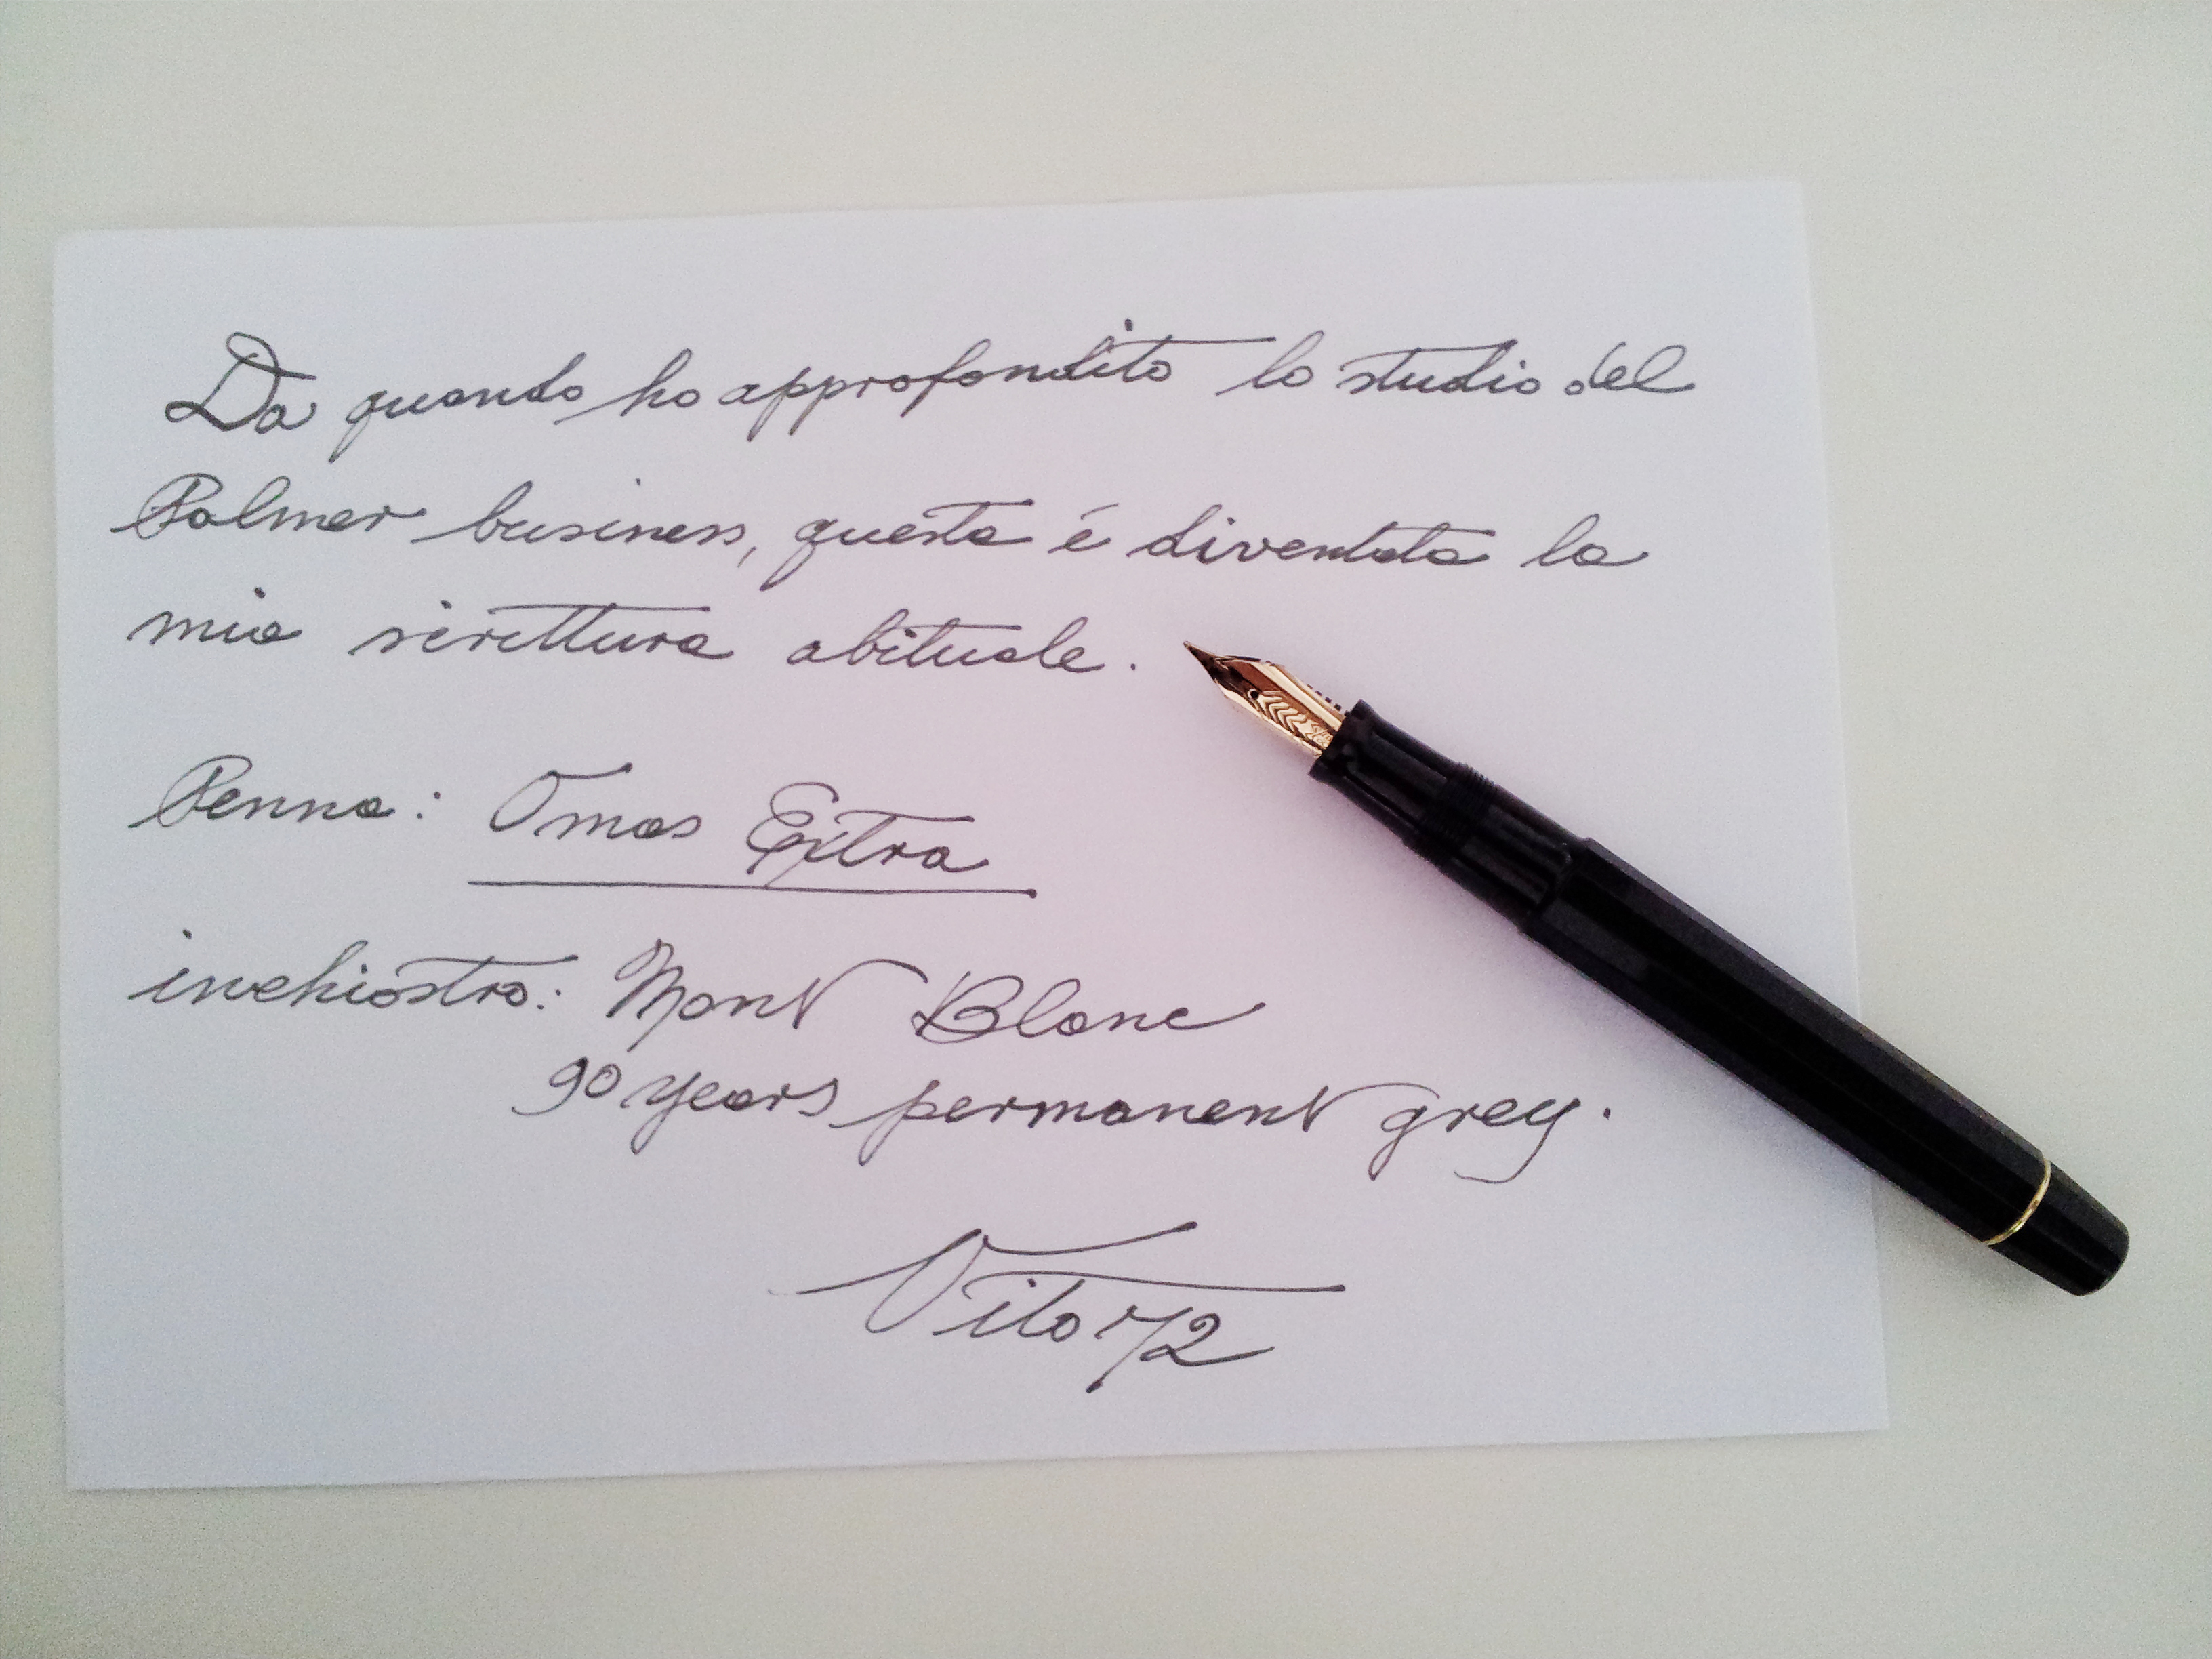 Da quando ho approfondito lo studio del
Palmer business, questa é diventata la
mia scrittura abituale.
Penna: Omas Extra
inchiostro: Mont Blanc
90 years permanent grey.
Vito 72